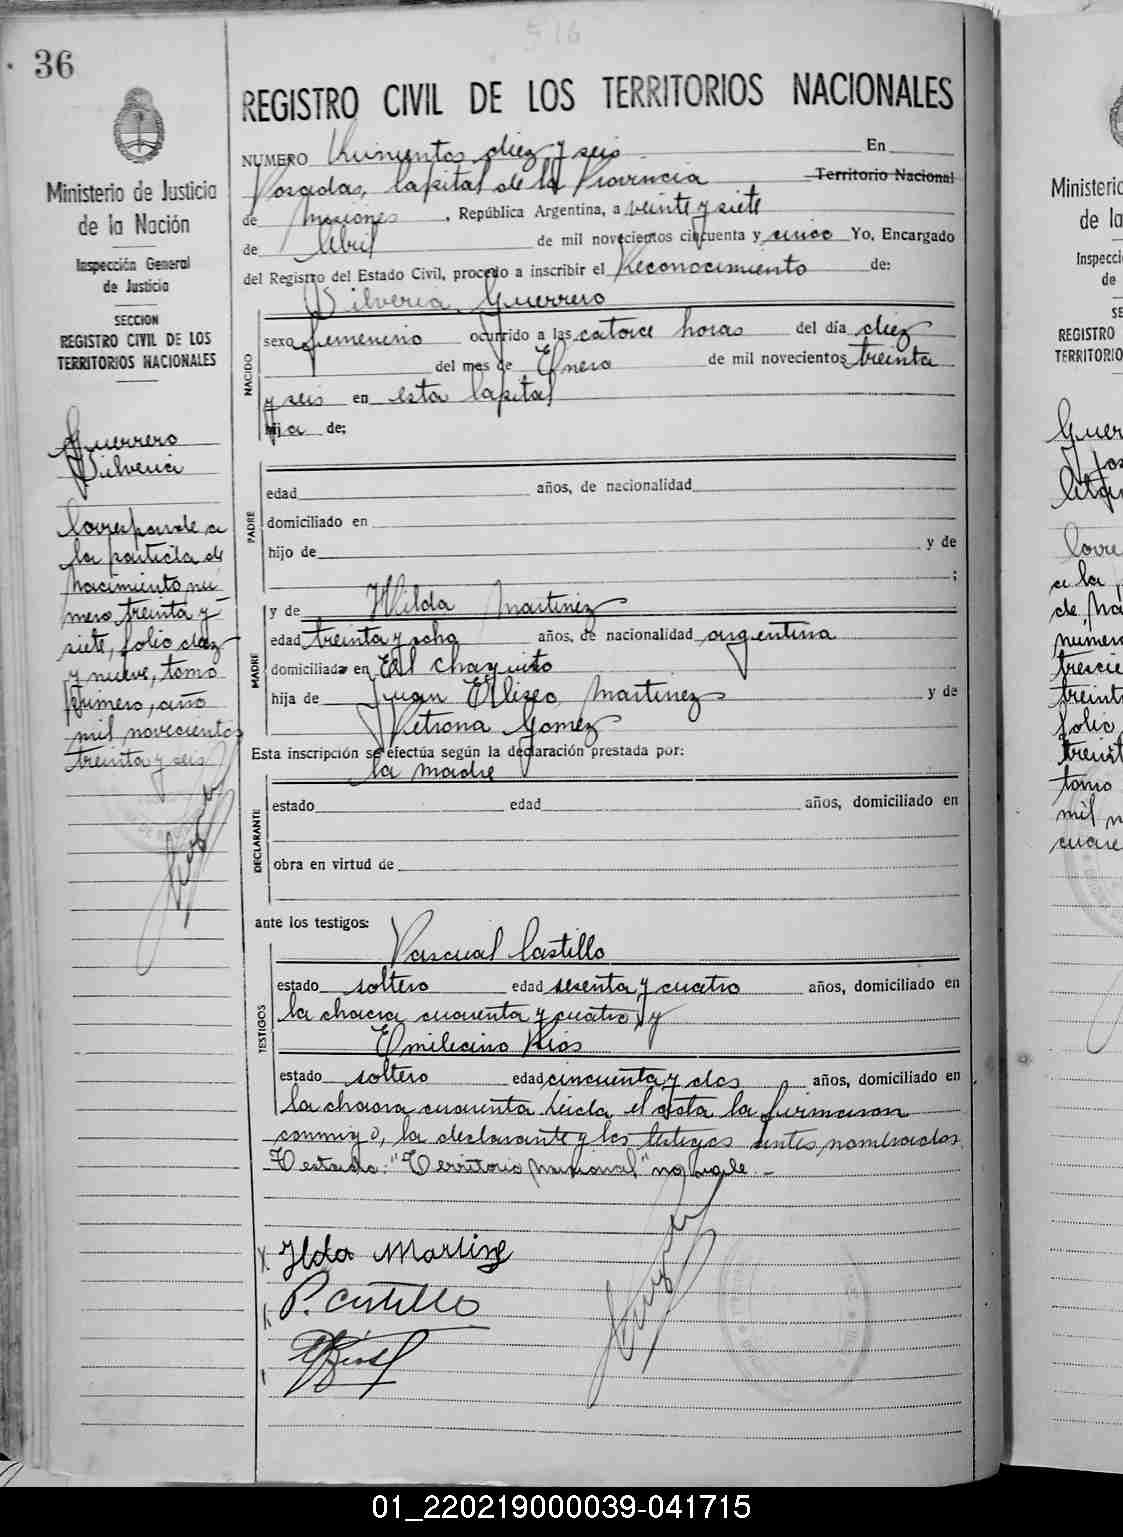 516
36
Ministerio de Justicia
de la Nación
Inspección General
de Justicia
SECCION
REGISTRO CIVIL DE LOS
TERRITORIOS NACIONALES
Guerrero
Silveria
Corresponde a
la partida de
nacimiento nu-
mero treinta y
siete, folio diez
y nueve, tomo
primero, año
mil novecientos
treinta y seis
REGISTRO CIVIL DE LOS TERRITORIOS NACIONALES
NUMERO Quinientos diez y seis En
Posadas, Capital de la Provincia Territorio Nacional
de Misiones, República Argentina, a veinte y siete
de Abril de mil novecientos cincuenta y cinco Yo, Encargado
del Registro del Estado Civil, procedo a inscribir el Reconocimiento de:
Silveria Guerrero
NACIDO
sexo femenino ocurrido a las catorce horas del día diez
del mes de Enero de mil novecientos treinta
y seis en esta Capital
hija de:
PADRE
edad años, de nacionalidad
domiciliado en
hijo de y de
;
MADRE
y de Hilda Martinez
edad treinta y ocho años, de nacionalidad argentina
domiciliada en El Chaquito
hija de Juan Eliseo Martinez y de
Petrona Gomez
Esta inscripción se efectúa según la declaración prestada por:
la madre
DECLARANTE
estado edad años, domiciliado en
obra en virtud de
ante los testigos:
Pascual Castillo
TESTIGOS
estado soltero edad sesenta y cuatro años, domiciliado en
la chacra cuarenta y cuatro y
Emilecino Rios
estado soltero edad cincuenta y dos años, domiciliado en
la chacra cuarenta. Leida el acta la firmaron
conmigo, la declarante y los testigos antes nombrados.
Testado: "Territorio Nacional" no vale.-
Ilda Martinez
P. Castillo
Ministerio
de la
Inspecci
de
SE
REGISTRO
TERRITORIO
Guer
a la
de
numer
trescie
treint
folio
treint
tomo
mil n
cuare
01_220219000039-041715